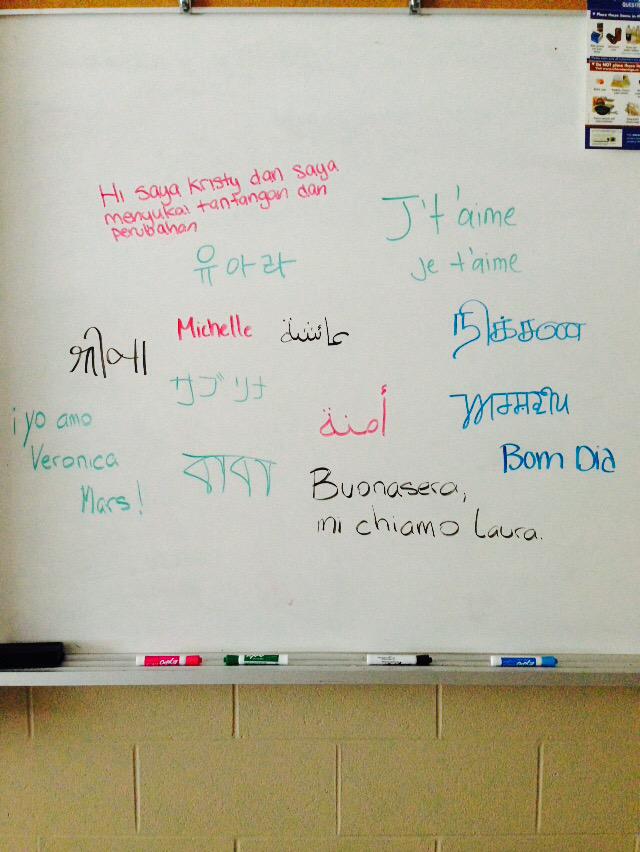 Hi saya kristy dan saya
menyukai tantangan dan
perubahan
J't'aime
je t'aime
유아라
Michelle
عائشة
サブリナ
أمنة
¡yo amo
Veronica
Mars!
বাবা
Bom Dia
Buonasera,
mi chiamo Laura.